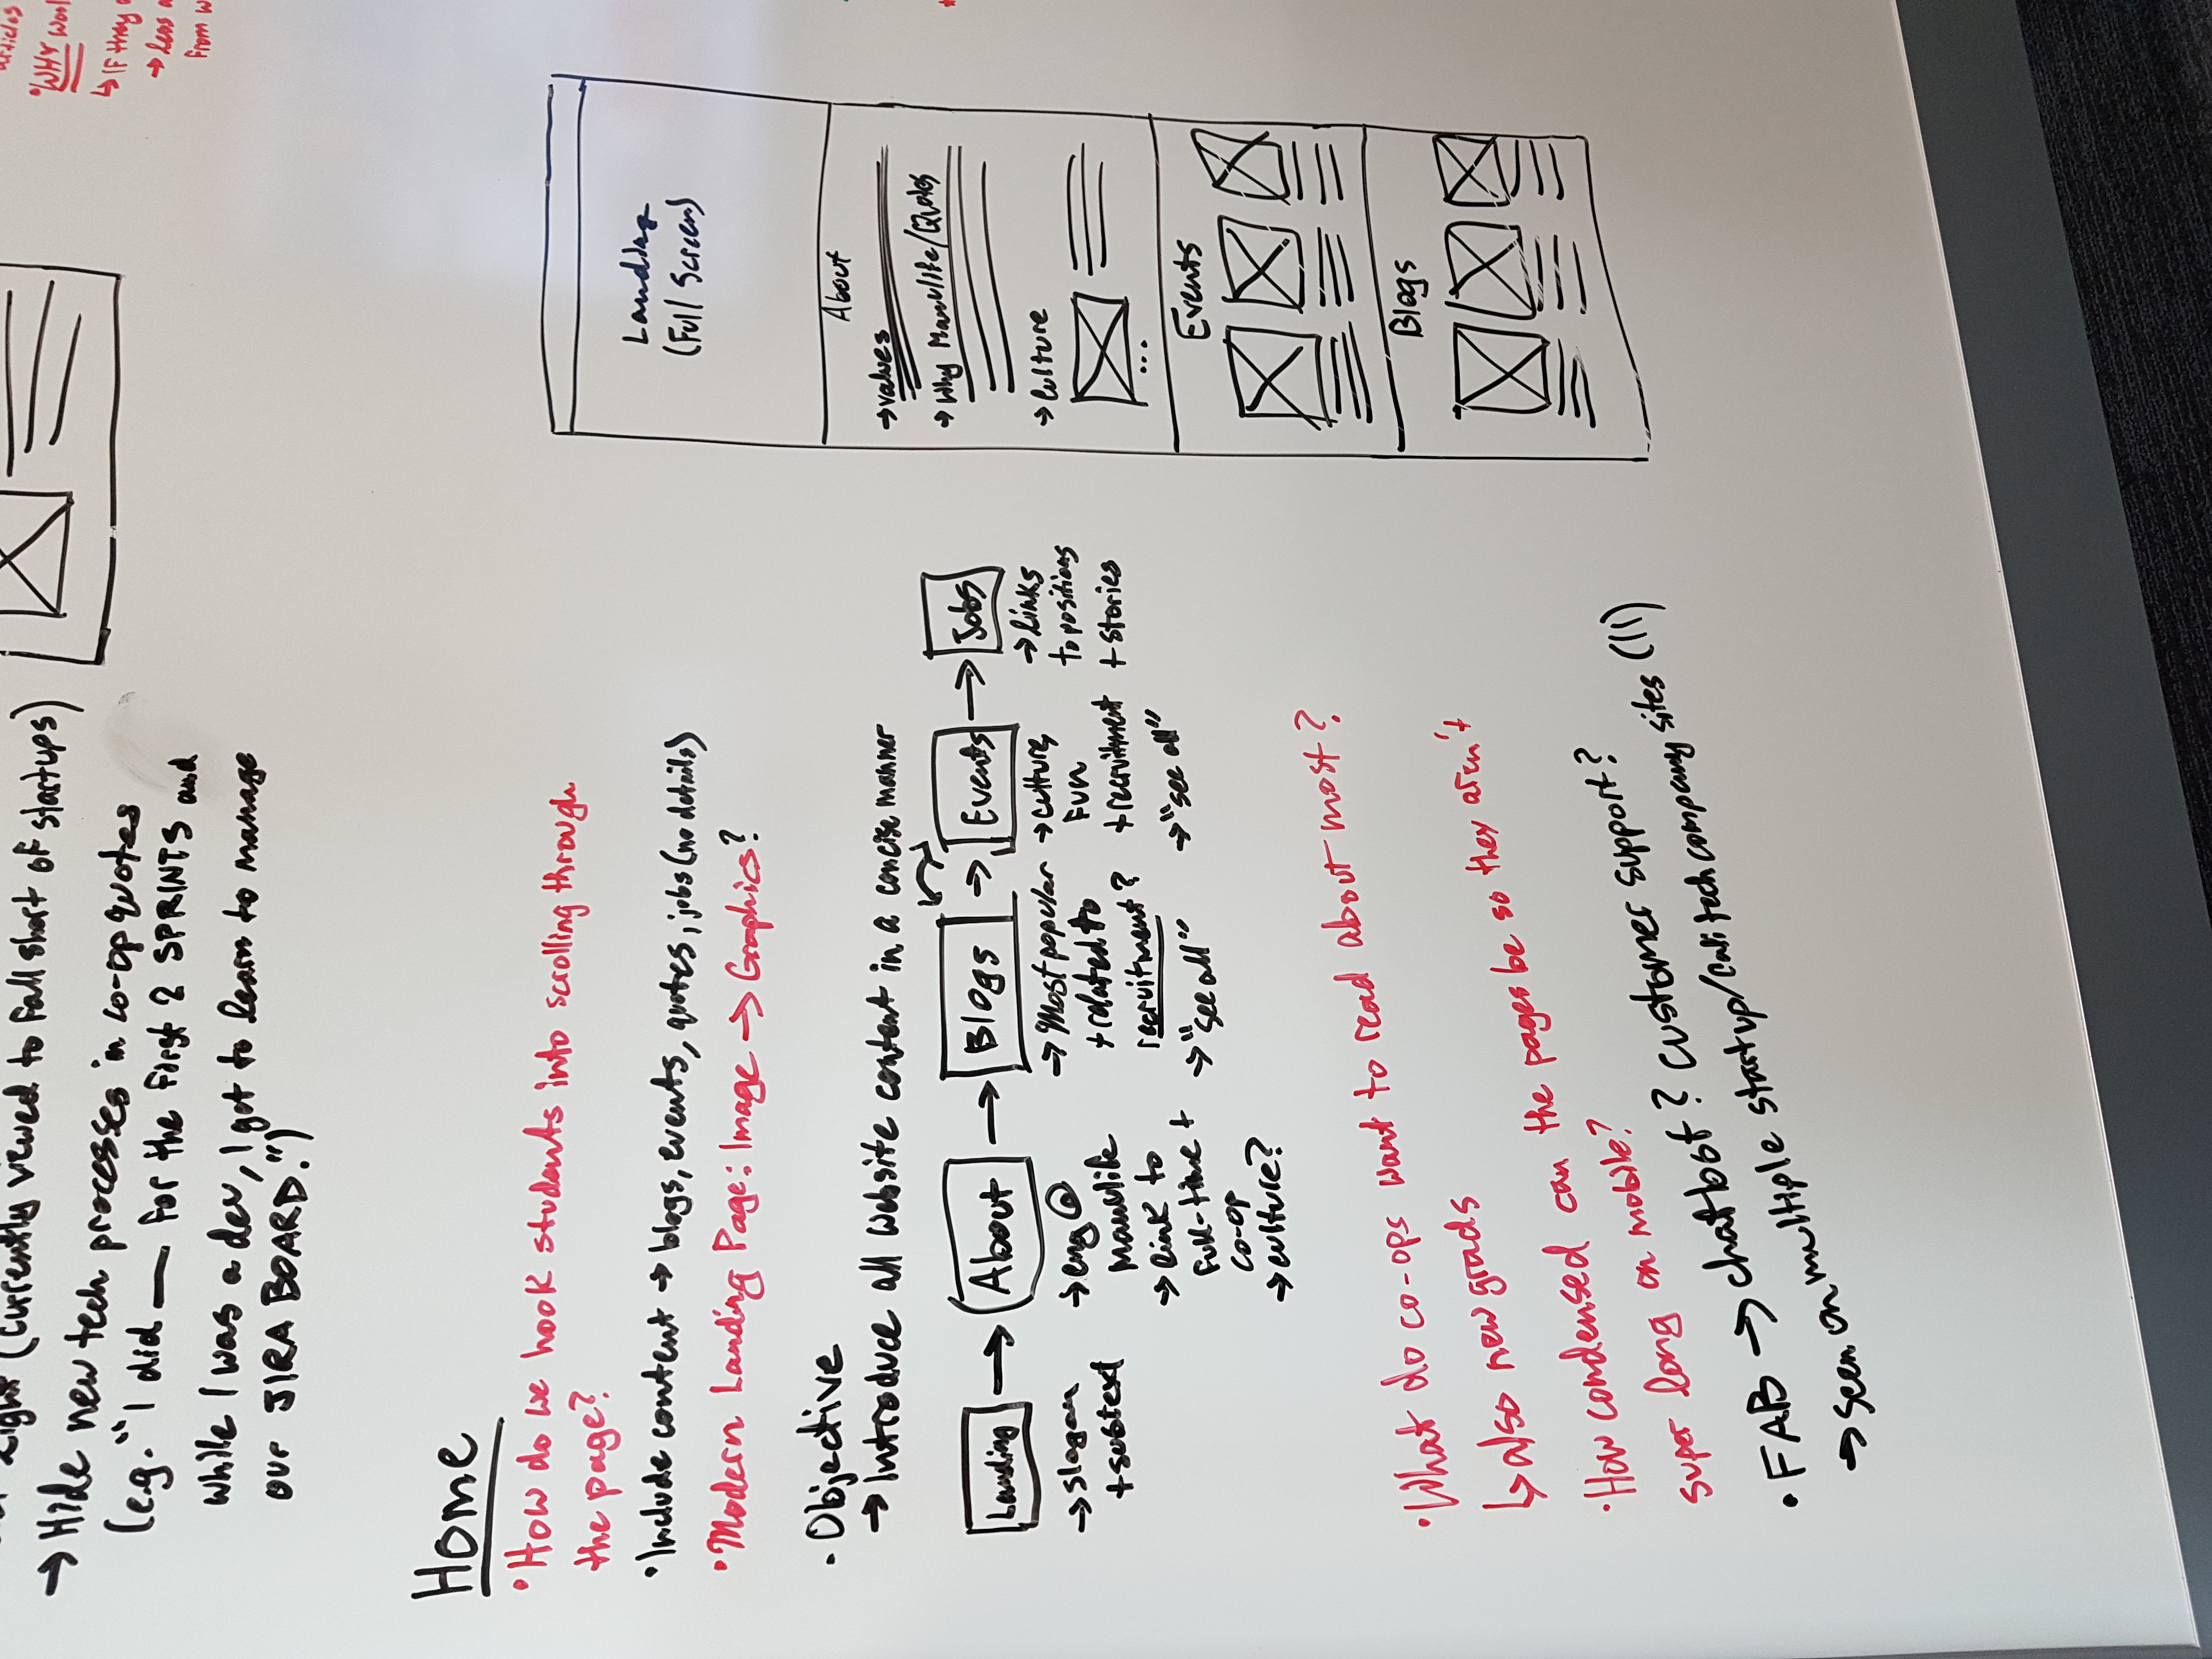 Light (currently viewed to fall short of startups)
→ Hide new tech processes in co-op quotes
(e.g. "I did — for the first 2 SPRINTS and
while I was a dev, I got to learn to manage
our JIRA BOARD.")
articles
• WHY
↳ IF they
→ less
from
Home
• How do we hook students into scrolling through
the page?
• Include content → blogs, events, quotes, jobs (no details)
• Modern Landing Page: Image → Graphics?
• Objective
→ Introduce all website content in a concise manner
Landing → About → Blogs → Events → Jobs
→ slogan
+ subtext
→ eng @
Manulife
→ link to
full-time +
co-op
→ culture?
→ Most popular
+ related to
recruitment?
→ "see all"
→ culture,
fun
+ recruitment
→ "see all"
→ links
to positions
+ stories
• What do co-ops want to read about most?
↳ also new grads
• How condensed can the pages be so they aren't
super long on mobile?
• FAB → chatbot? customer support?
→ seen on multiple startup/Cali tech company sites (11)
Landing
(Full Screen)
About
→ values
→ Why Manulife/Quotes
→ Culture
...
Events
Blogs